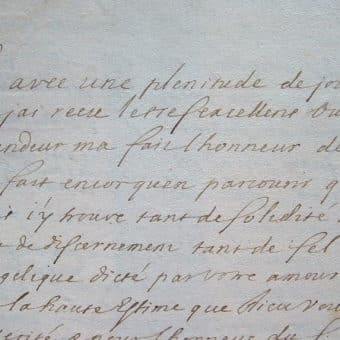 avec une plenitude de jo
j'ai receu le tres excellent Ou
andeur ma fait lhonneur de
fait encor quen parcourir q
i'y trouve tant de solidité
de discernement tant de sel
gelique dicté par votre amour
la haute Estime que Dieu vou